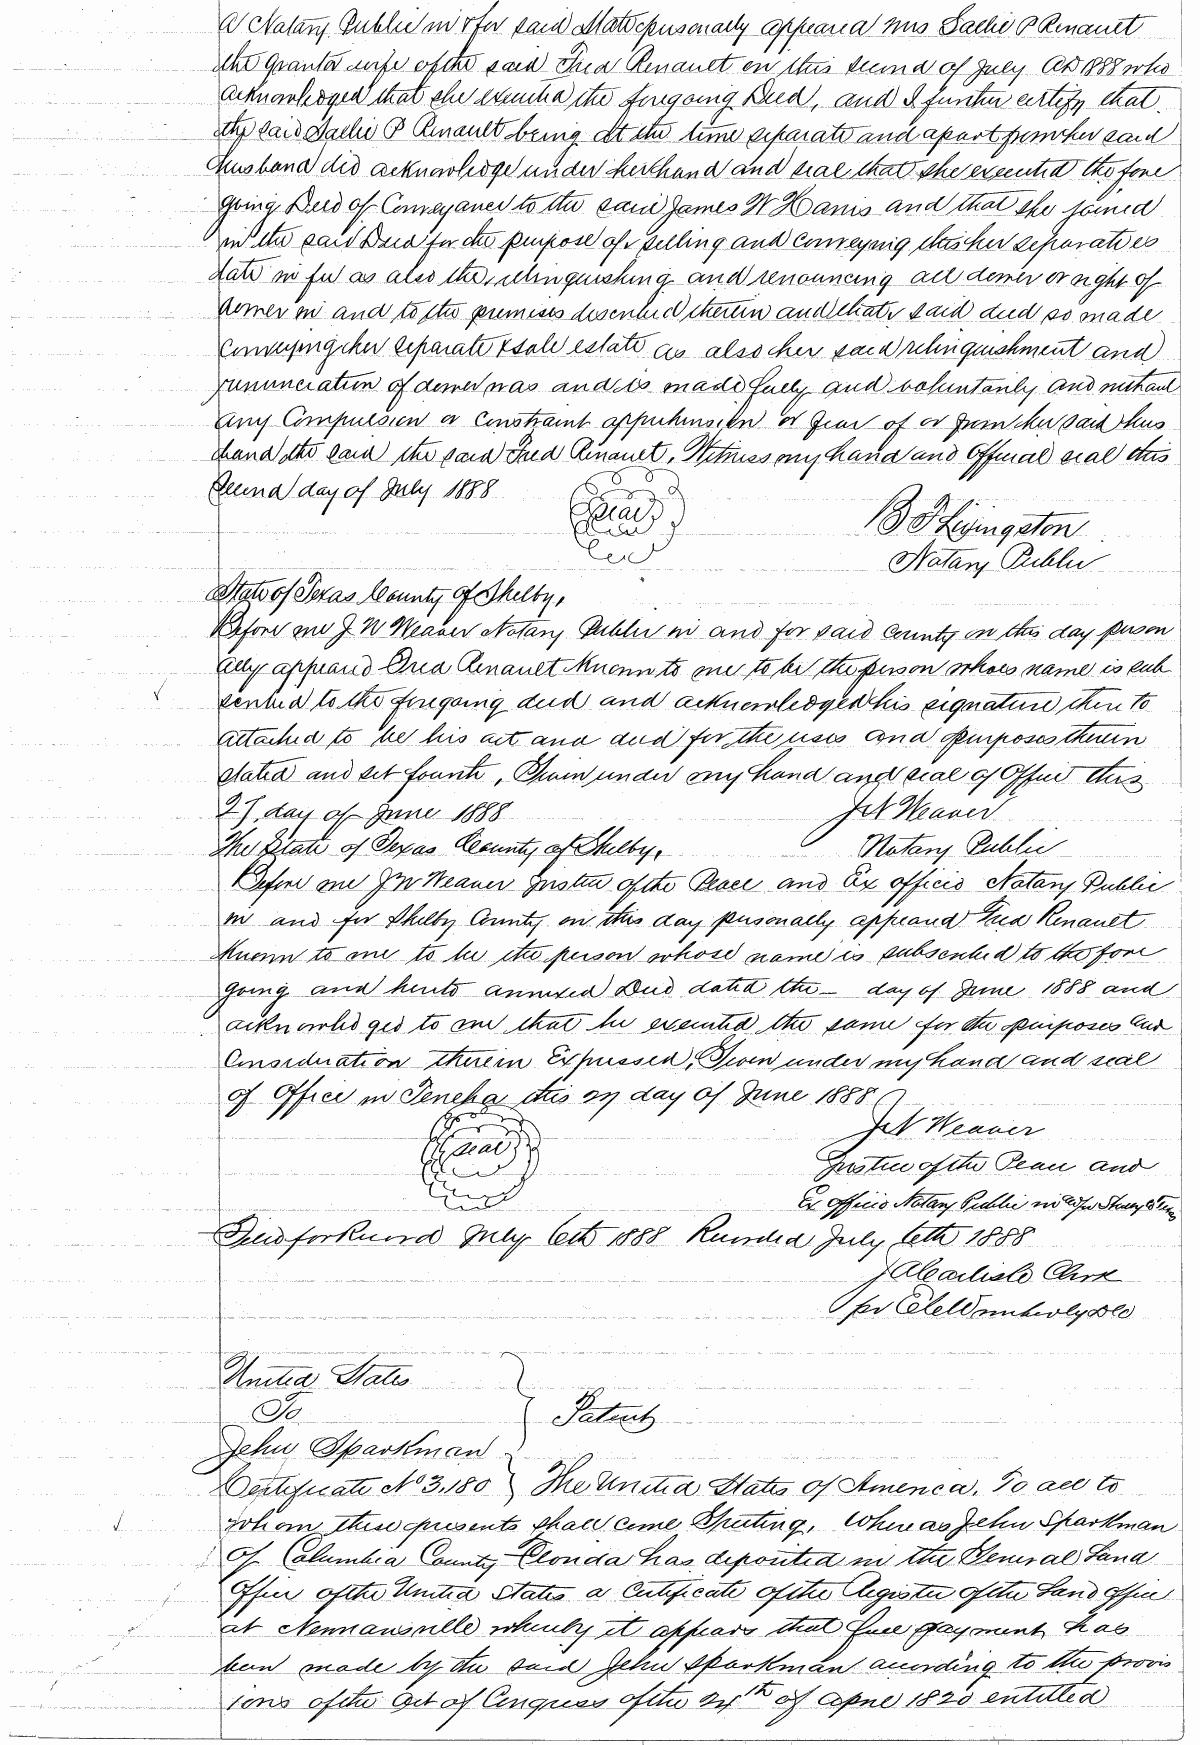 a Notary Public in & for said State personally appeared Mrs Sallie P Renault
the grantor wife of the said Fred Renault on this second of July AD 1888 who
acknowledged that she executed the foregoing Deed, and I further certify that
the said Sallie P Renault being at the time separate and apart from her said
husband did acknowledge under her hand and seal that she executed the fore
going Deed of Conveyance to the said James W Harris and that she joined
in the said Deed for the purpose of selling and conveying this her separate es
tate in fee as also the relinquishing and renouncing all dower or right of
dower in and to the premises described therein and that said deed so made
conveying her separate & sole estate as also her said relinquishment and
renunciation of dower was and is made freely and voluntarily and without
any Compulsion or constraint apprehension or fear of or from her said hus
band the said the said Fred Renault, Witness my hand and official seal this
Second day of July 1888
Seal
B F Livingston
Notary Public
State of Texas County of Shelby,
Before me J W Weaver Notary Public in and for said County on this day person
ally appeared Fred Renault Known to me to be the person whoes name is sub
scribed to the foregoing deed and acknowledged his signature there to
attached to be his act and deed for the uses and purposes therein
stated and set fourth, Given under my hand and seal of Office this
27, day of June 1888
J W Weaver
The State of Texas County of Shelby,
Notary Public
Before me J W Weaver Justice of the Peace and Ex officio Notary Public
in and for Shelby County on this day personally appeared Fred Renault
Known to me to be the person whose name is subscribed to the fore
going and hereto annexed Deed dated the — day of June 1888 and
acknowledged to me that he executed the same for the purposes and
Consideration therein Expressed, Given under my hand and seal
of Office in Teneha this 27 day of June 1888
Seal
J W Weaver
Justice of the Peace and
Ex officio Notary Public in & for Shelby Co Texas
Filed for Record July 6th 1888 Recorded July 6th 1888
Clerk
per
United States
To
Patent
John Sparkman
Certificate No 3,180 } The United States of America, To all to
whom these presents shall come Greeting, Whereas John Sparkman
of Columbia County Florida has deposited in the General Land
Office of the United States a Certificate of the Register of the Land office
at Newnansville whereby it appears that full payment has
been made by the said John Sparkman according to the provis
ions of the Act of Congress of the 24th of April 1820 entitled